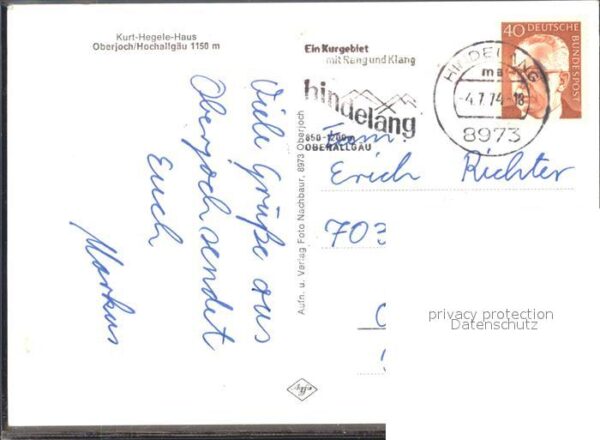 Kurt-Hegele-Haus
Oberjoch/Hochallgäu 1150 m
Viele Grüße aus
Oberjoch sendet
Euch
Markus
Aufn. u. Verlag Foto Nachbaur, 8973 Oberjoch
Ein Kurgebiet
mit Rang und Klang
hindelang
850-1200m
OBERALLGÄU
HINDELANG
ma
-4.7.74-18
8973
40
DEUTSCHE
BUNDESPOST
Fam.
Erich Richter
703
privacy protection
Datenschutz